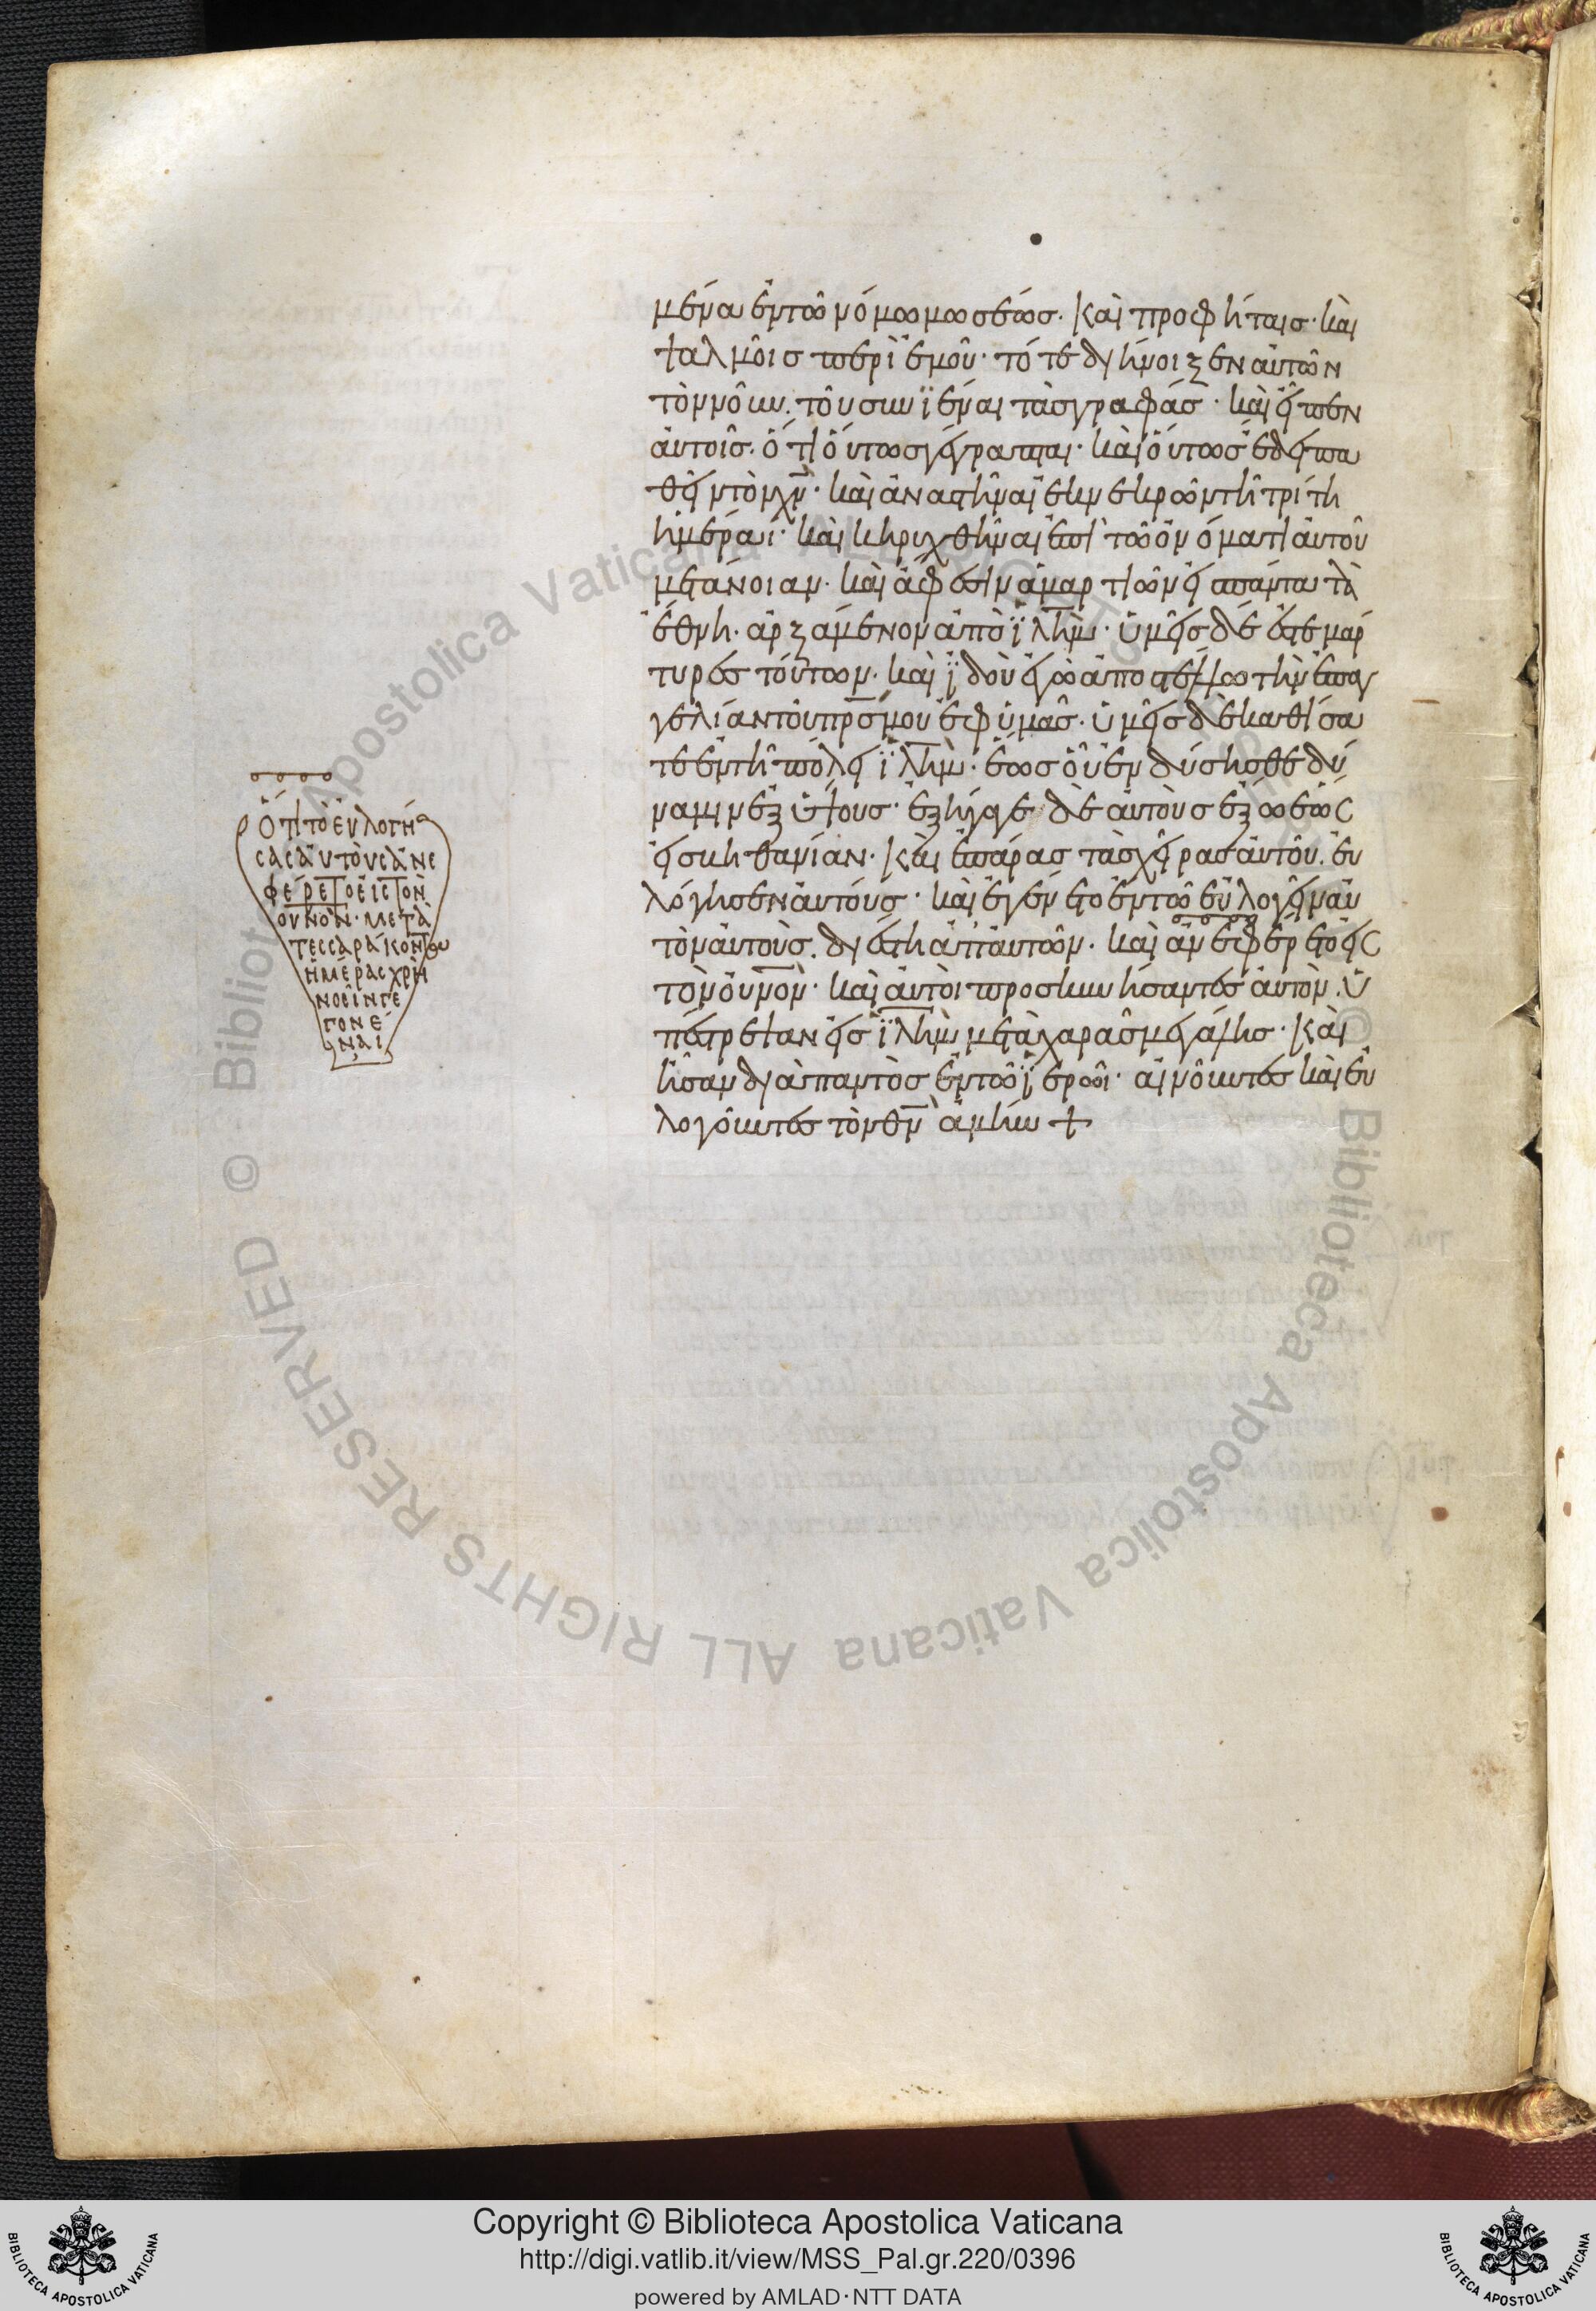 μενα ἐν τῶ νόμω μωσέως· καὶ προφήταις· καὶ
ψαλμοῖς περὶ ἐμοῦ· τότε διήνοιξεν αὐτῶν
τὸν νοῦν. τοῦ συνϊέναι τὰς γραφάς· καὶ εἶπεν
αὐτοῖς. ὅτι οὕτως γέγραπται· καὶ οὕτως ἔδει πα
θεῖν τὸν χν· καὶ ἀναστῆναι ἐκ νεκρῶν τῆ τρίτη
ἡμέραι· καὶ κηρυχθῆναι ἐπὶ τῶ ὀνόματι αὐτοῦ
μετάνοιαν. καὶ ἄφεσιν ἁμαρτιῶν εἰς πάντα τὰ
ἔθνη· ἀρξάμενον ἀπὸ ϊλημ· ὑμεῖς δέ ἐστε μάρ
τυρες τούτων· καὶ ϊδοὺ ἐγὼ ἀποστέλλω τὴν ἐπαγ
γελίαν τοῦ πρς μου ἐφ ὑμᾶς· ὑμεῖς δὲ καθίσα
τε ἐν τῆ πόλει ϊλημ· ἕως οὗ ἐνδύσησθε δύ
ναμιν ἐξ ὕψους· ἐξήγαγε δὲ αὐτοὺς ἔξω ἕως
εἰς βηθανίαν· καὶ ἐπάρας τὰς χεῖρας αὐτοῦ. εὐ
λόγησεν αὐτούς· καὶ ἐγένετο ἐν τῶ εὐλογεῖν αὐ
τὸν αὐτοὺς. διέστη ἀπ αὐτῶν· καὶ ἀνεφέρετο εἰς
τὸν οὐνον· καὶ αὐτοὶ προσκυνήσαντες αὐτὸν. ὑ
πέστρεψαν εἰς ϊλημ μετὰ χαρᾶς μεγάλης· καὶ
ἦσαν διαπαντὸς ἐν τῶ ϊερῶι· αἰνοῦντες καὶ εὐ
λογοῦντες τὸν θν ἀμήν +
ὅτι τὸ εὐλογή
σας αὐτοὺς ἀνε
φέρετο εἰς τὸν
οὐνον· μετὰ
τεσσαράκοντα
ἡμέρας χρὴ
νοεῖν γε
γονέ
ναι
Copyright © Biblioteca Apostolica Vaticana
http://digi.vatlib.it/view/MSS_Pal.gr.220/0396
powered by AMLAD·NTT DATA